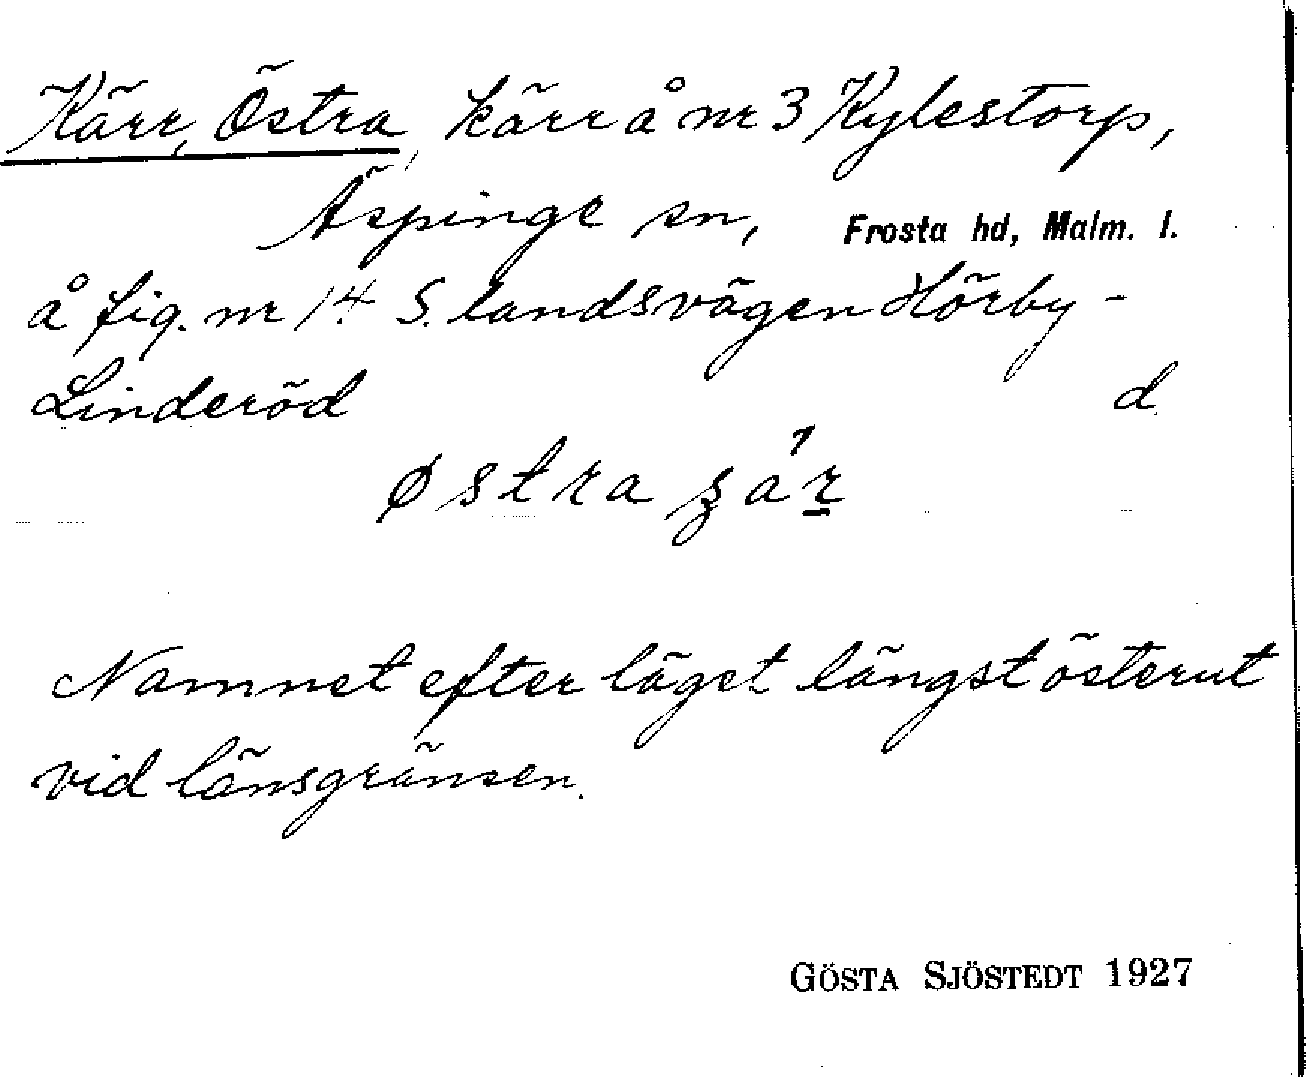 Kärr, Östra, kärr å nr 3 Kylestorp,
Äspinge sn, Frosta hd, Malm. l.
å fig. nr 14 S. landsvägen Hörby-
Linderöd d
østra
Namnet efter läget längst österut
vid länsgränsen.
GÖSTA SJÖSTEDT 1927